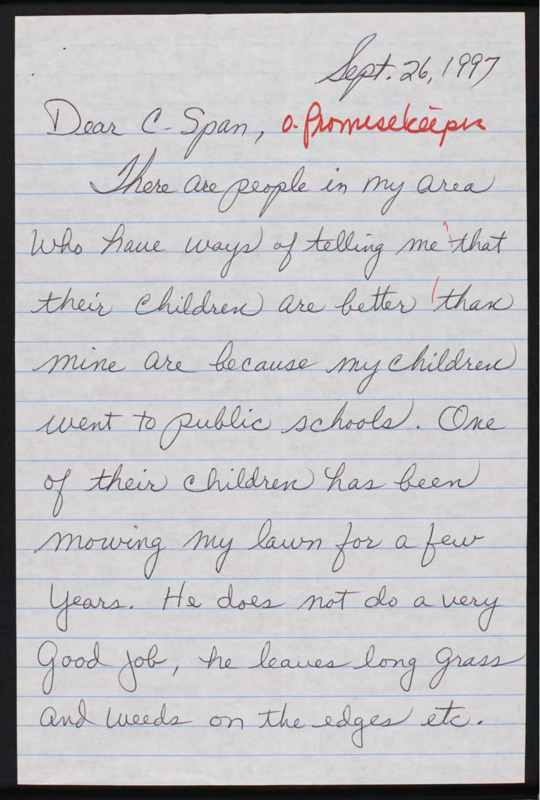 Sept. 26, 1997
Dear C-Span, a. Promisekeeper
There are people in my area
who have ways of telling me that
their children are better than
mine are because my children
went to public schools. One
of their children has been
mowing my lawn for a few
years. He does not do a very
good job, he leaves long grass
and weeds on the edges etc.